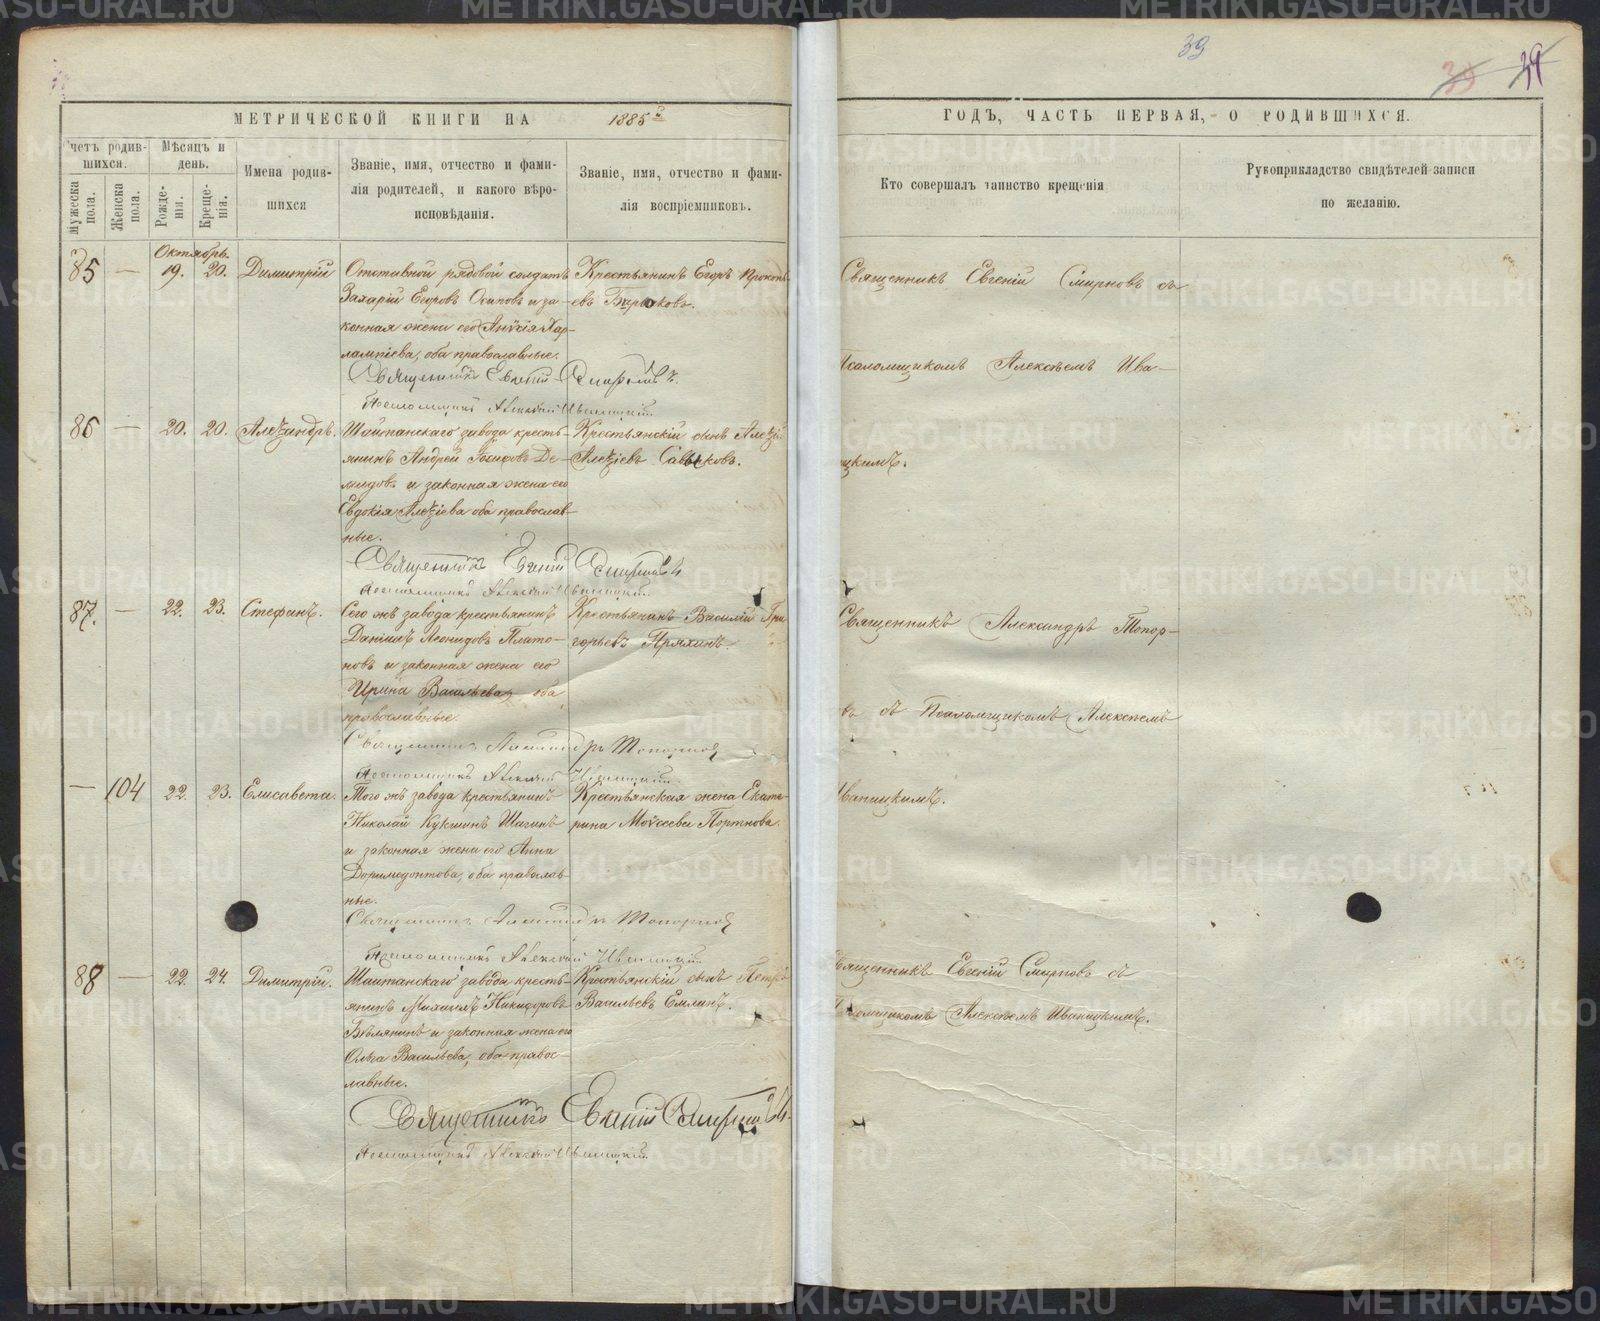 39
39
39
МЕТРИЧЕСКОЙ КНИГИ НА 1885й
ГОДЪ, ЧАСТЬ ПЕРВАЯ, О РОДИВШИХСЯ.
Счетъ родившихся.
Мужеска пола.
Женска пола.
Мѣсяцъ и день.
Рожденія.
Крещенія.
Имена родившихся
Званіе, имя, отчество и фамилія родителей, и какого вѣроисповѣданія.
Званіе, имя, отчество и фамилія воспріемниковъ.
Кто совершалъ таинство крещенія
Рукоприкладство свидѣтелей записи по желанію.
Октябрь.
85 — 19. 20. Димитрій
Отставной рядовой солдатъ
Захарій Егоровъ Осиповъ и за-
конная жена его Анѵсія Хар-
лампіева, оба православные.
Крестьянинъ Егоръ Прокопь-
евъ
Священникъ Евгеній Смирновъ съ
Псаломщикомъ Алексѣемъ Ива-
ницкимъ.
Священникъ Евгеній Смирновъ.
Псаломщикъ Алексѣй Иваницкій.
86 — 20. 20. Алеѯандръ.
Шайтанскаго завода кресть-
янинъ Андрей Іосифовъ Де-
мидовъ и законная жена его
Евдокія Алеѯіева оба православ-
ные.
Крестьянскій сынъ Алеѯій
Алеѯіевъ
Священникъ Евгеній Смирновъ
Псаломщикъ Алексѣй Иваницкій.
87. — 22. 23. Стефанъ.
Сего жъ завода крестьянинъ
Даніилъ Леонидовъ Плато-
новъ и законная жена его
Ирина Васильева, оба
православные.
Крестьянинъ Василій Гри-
горьевъ Пряхинъ.
Священникъ Александръ Топор-
въ съ Псаломщикомъ Алексѣемъ
Иваницкимъ.
Священникъ Александръ Топорковъ
Псаломщикъ Алексѣй Иваницкій.
— 104 22. 23. Елисавета.
Того жъ завода крестьянинъ
Николай Шагинъ
и законная жена его Анна
Доримедонтова, оба православ-
ные.
Крестьянская жена Екате-
рина Моѵсеева Портнова.
Священникъ Александръ Топорковъ
Псаломщикъ Алексѣй Иваницкій
88 — 22. 24. Димитрій.
Шайтанскаго завода кресть-
янинъ Михаилъ Никифоровъ
и законная жена его
Ольга Васильева, оба право-
славные.
Крестьянскій сынъ Петръ
Васильевъ Емлинъ.
Священникъ Евгеній Смирновъ съ
Псаломщикомъ Алексѣемъ Иваницкимъ.
Священникъ Евгеній Смирновъ.
Псаломщикъ Алексѣй Иваницкій.
METRIKI.GASO-URAL.RU